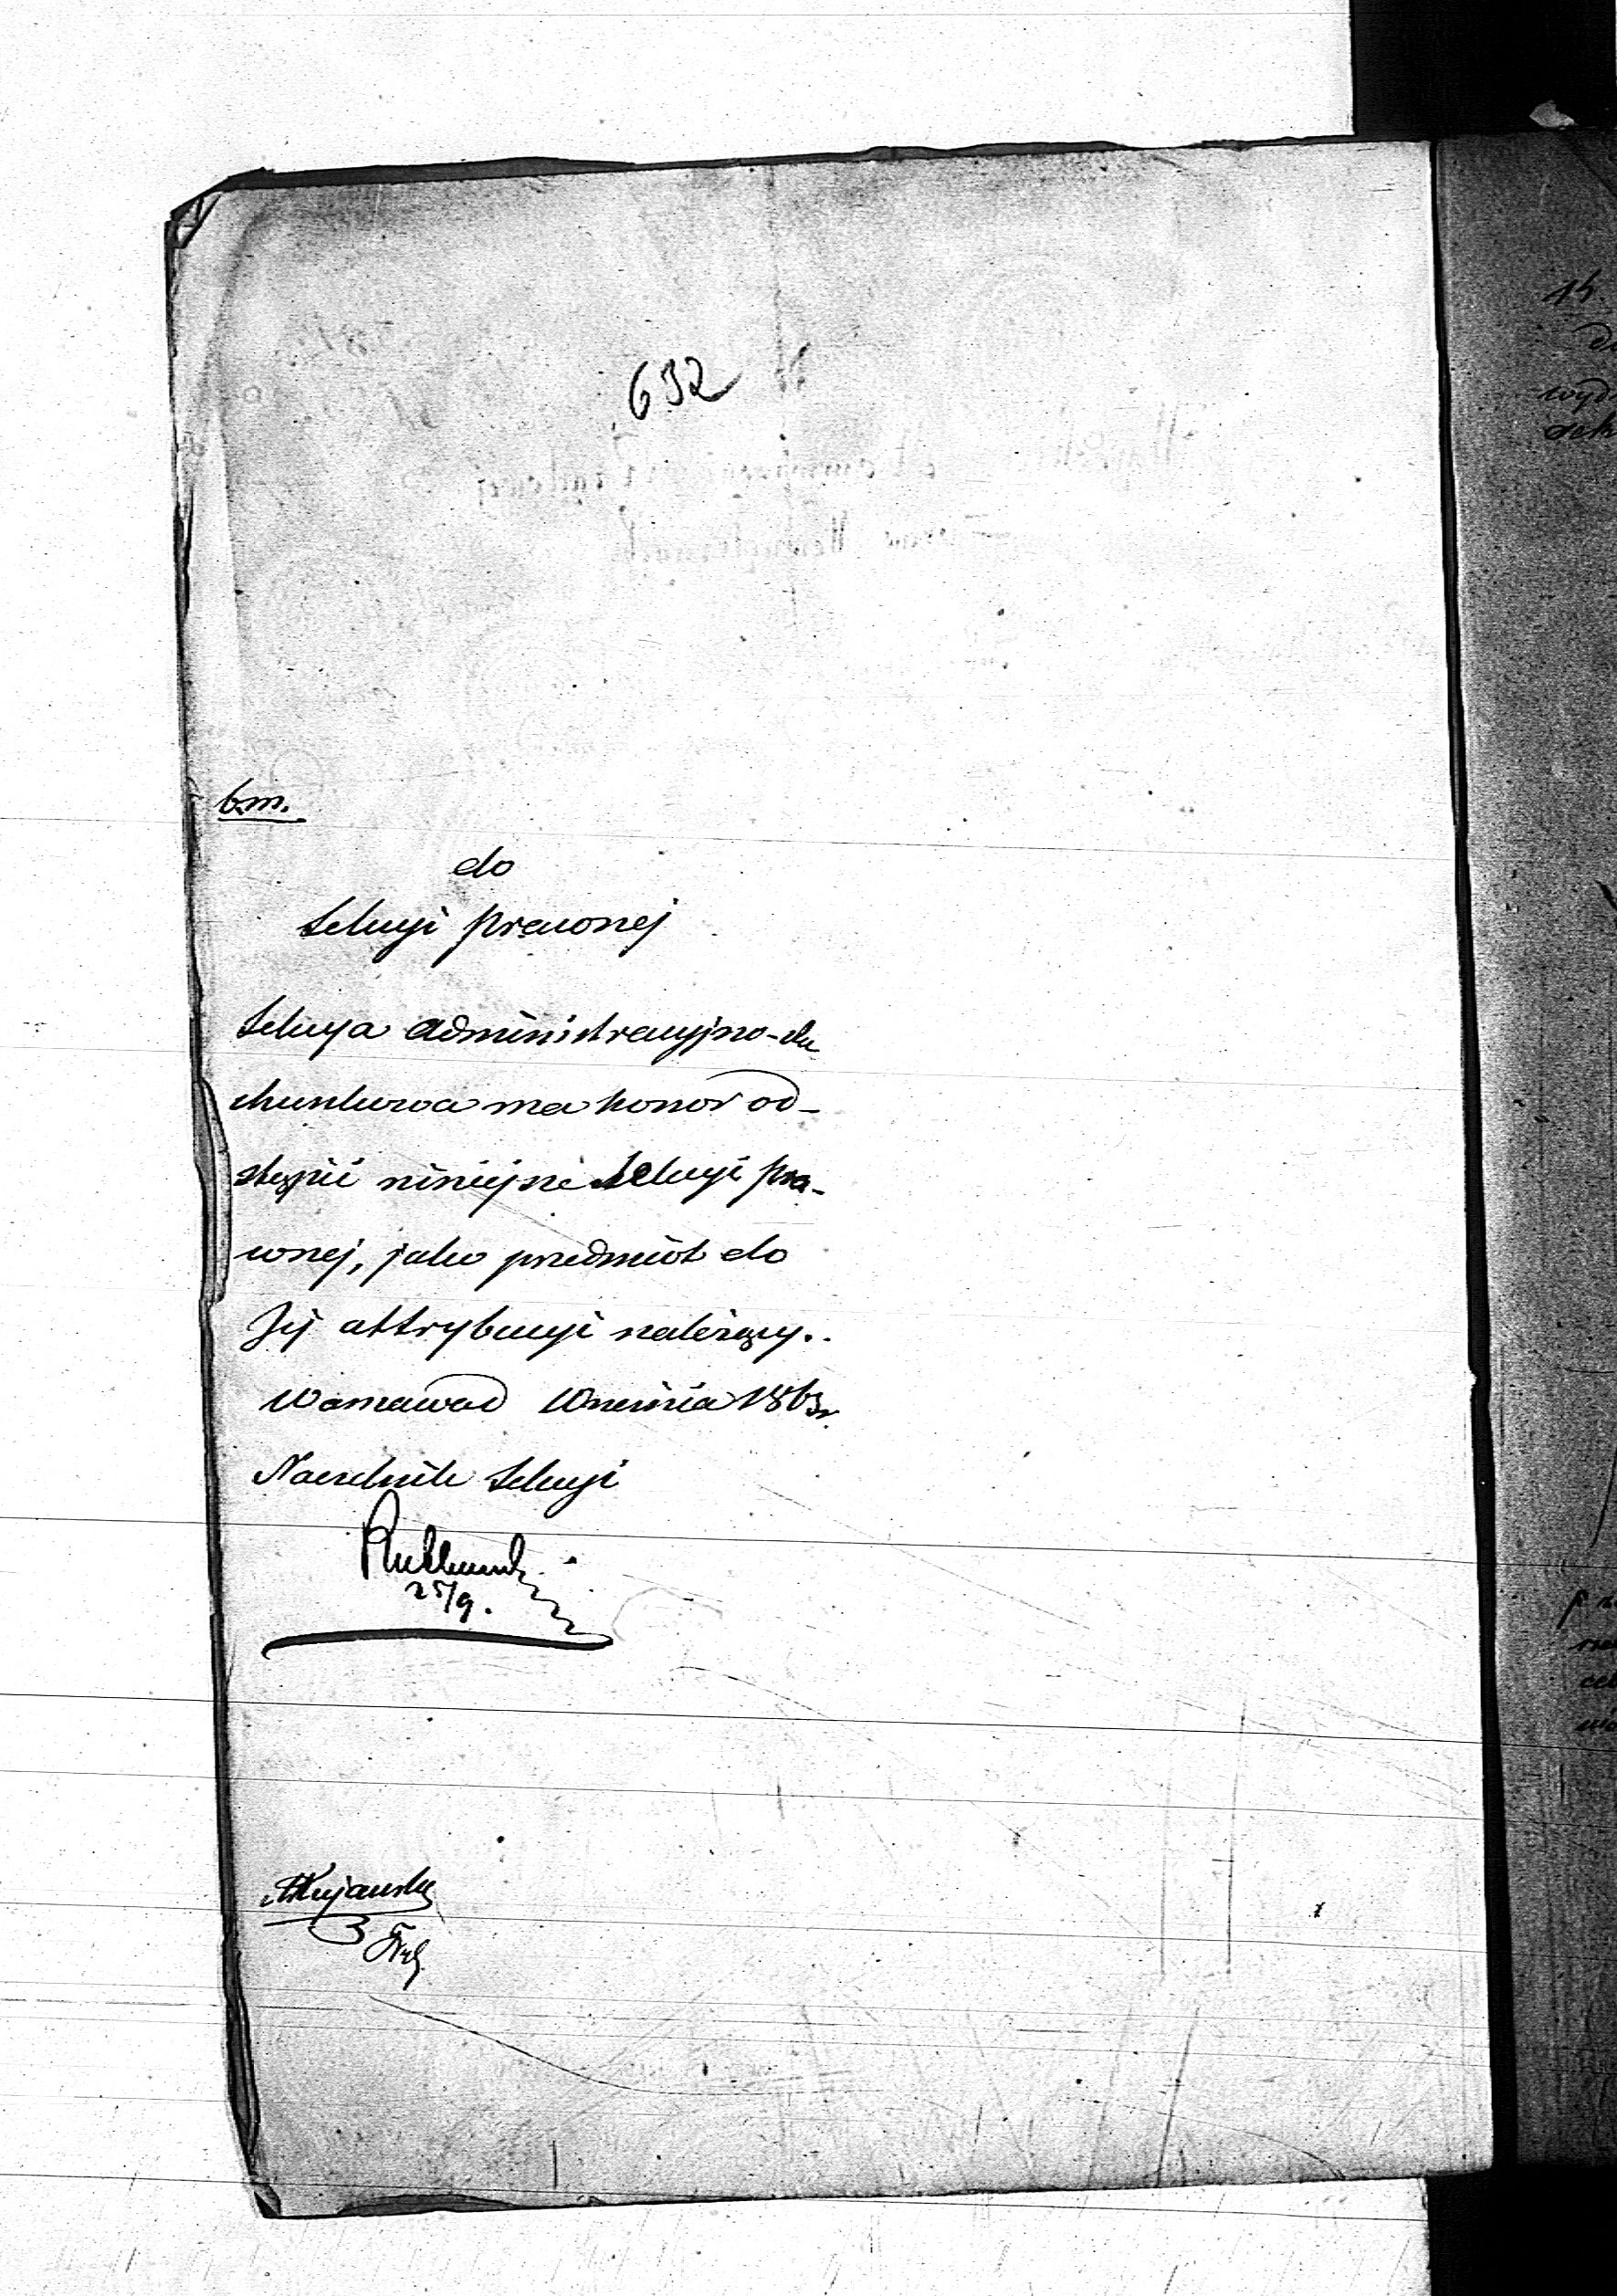 632
b.m.
do
Sekcyi prawnej
Sekcya administracyjno-du
chunkowa ma honor od-
stąpić niniejsze Sekcyi pra-
wnej, jako przedmiot do
Jéj attrybucyi należący.
Warszawa d Września 1863 r.
Naczelnik Sekcyi
25/9.